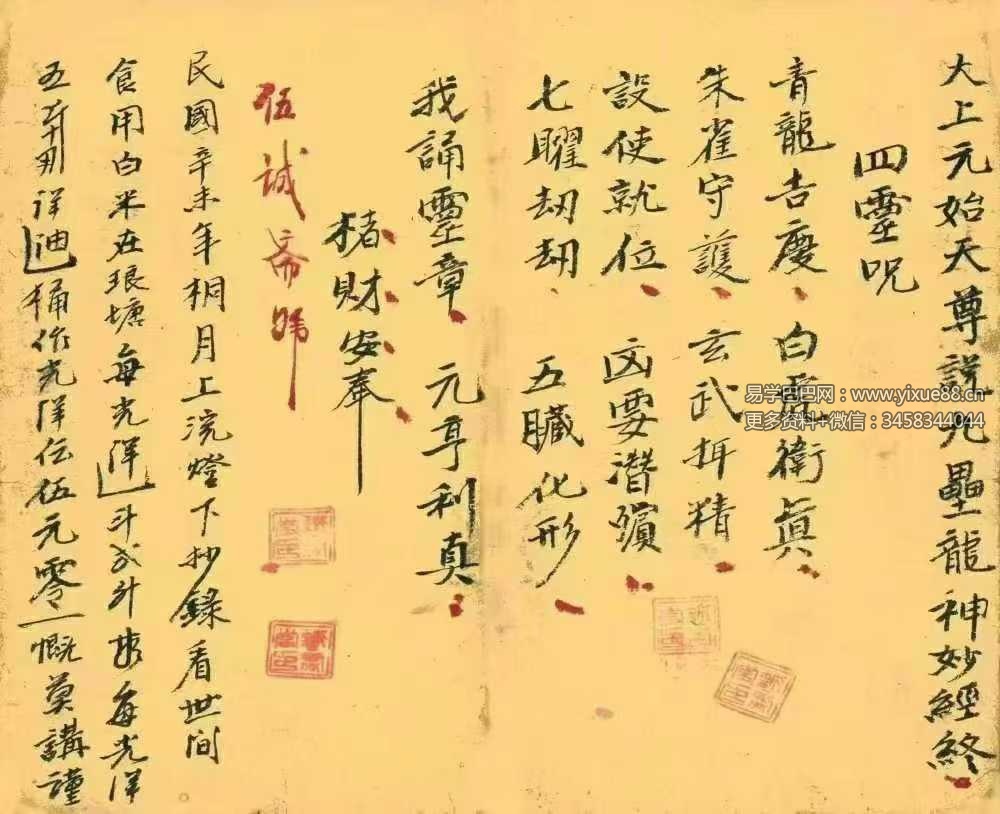 大上元始天尊説九壘龍神妙經終
四靈呪
青龍吉慶 白虎衛眞
朱雀守護 玄武拜精
設使就位 凶
七曜劫劫 五臟化形
我誦靈章 元亨利真
楮財安奉
伍誠斋
民國辛未年桐月上浣燈下抄錄看世间
食用白米在琅塘每光洋斗 斗 每光洋
五 洋 桶作光洋 伍元零一慨莫講謹
易学巴巴网：www.yixue88.cn
更多资料+微信：3458344044